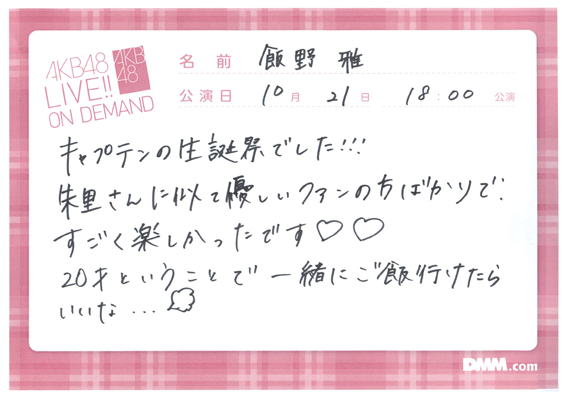 AKB48
LIVE!!
ON DEMAND
AKB
48
名 前 飯野 雅
公演日 10月 21日 18:00 公演
キャプテンの生誕祭でした!!!
朱里さんに似て優しいファンの方ばかりで、
すごく楽しかったです♡♡
20才ということで一緒にご飯行けたら
いいな...
DMM.com